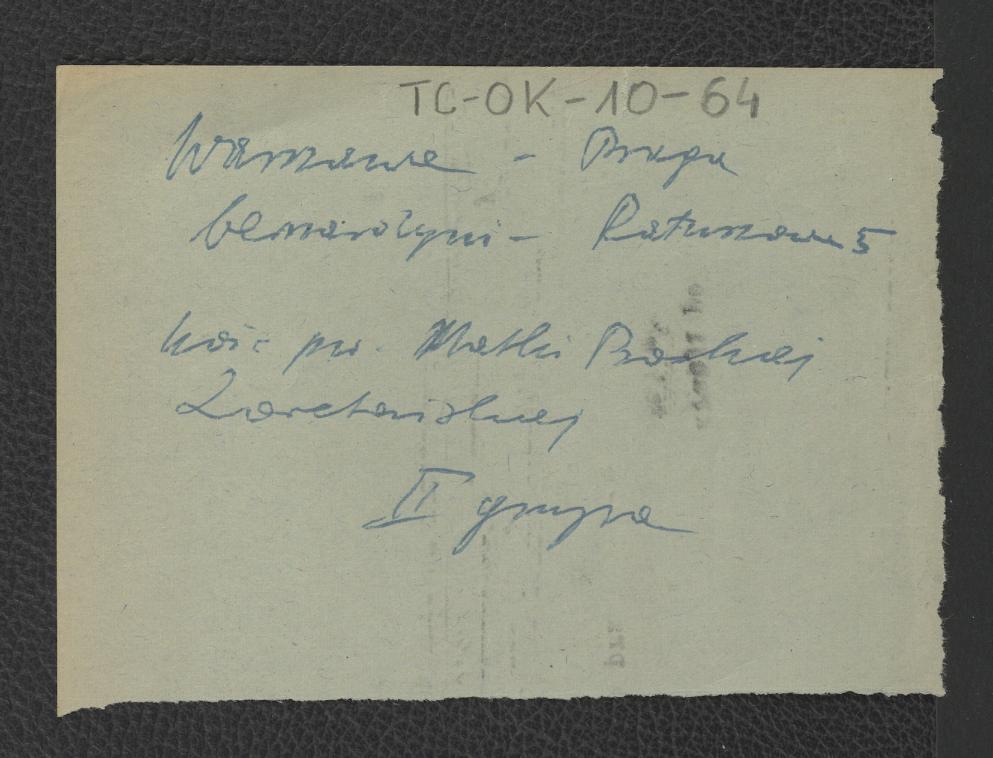 TC-OK-10-64
Warszawa - Praga
bernardyni - Ratuszowa 5
kośc pw. Matki Boskiej
Loretańskiej
II grupa